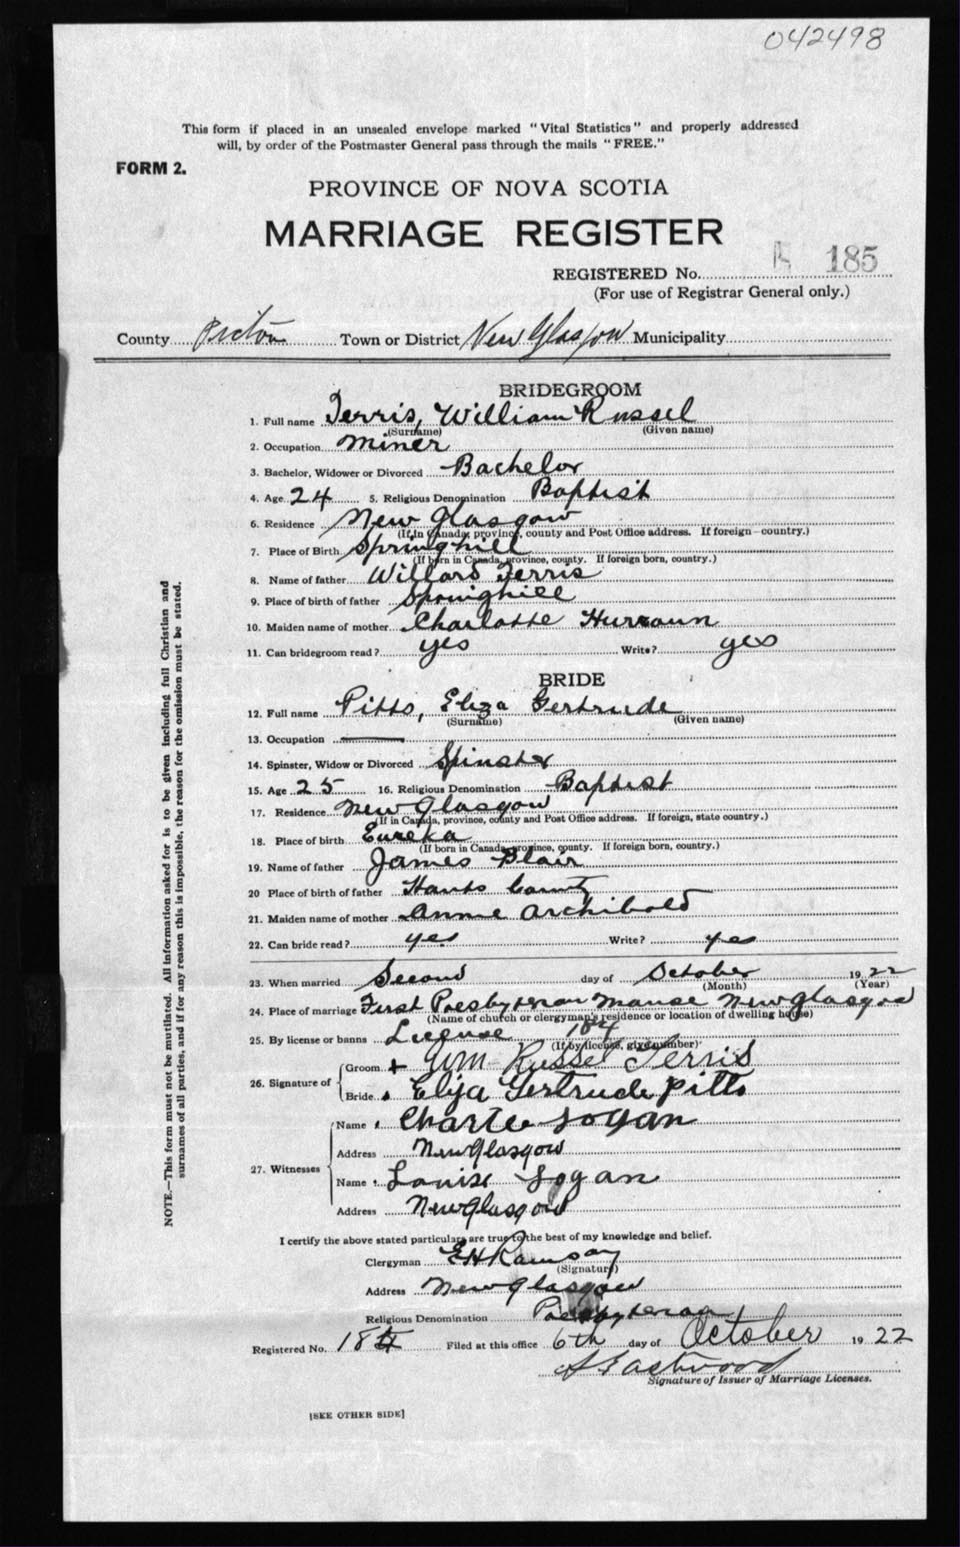 042498
This form if placed in an unsealed envelope marked "Vital Statistics" and properly addressed
will, by order of the Postmaster General pass through the mails "FREE."
FORM 2.
PROVINCE OF NOVA SCOTIA
MARRIAGE REGISTER
REGISTERED No. 185
(For use of Registrar General only.)
County Pictou Town or District New Glasgow Municipality
BRIDEGROOM
1. Full name Ferris, William Russel
(Surname) (Given name)
2. Occupation miner
3. Bachelor, Widower or Divorced Bachelor
4. Age 24 5. Religious Denomination Baptist
6. Residence New Glasgow
(If in Canada, province, county and Post Office address. If foreign—country.)
7. Place of Birth Springhill
(If born in Canada, province, county. If foreign born, country.)
8. Name of father Willard Ferris
9. Place of birth of father Springhill
10. Maiden name of mother Charlotte
11. Can bridegroom read? yes Write? yes
BRIDE
12. Full name Pitts, Eliza Gertrude
(Surname) (Given name)
13. Occupation
14. Spinster, Widow or Divorced Spinster
15. Age 25 16. Religious Denomination Baptist
17. Residence New Glasgow
(If in Canada, province, county and Post Office address. If foreign, state country.)
18. Place of birth Eureka
(If born in Canada, province, county. If foreign born, country.)
19. Name of father James Blair
20 Place of birth of father Hants County
21. Maiden name of mother Annie Archibald
22. Can bride read? yes Write? yes
23. When married Second day of October 1922
(Month) (Year)
24. Place of marriage First Presbyterian Manse New Glasgow
(Name of church or clergyman's residence or location of dwelling house)
25. By license or banns License 184
(If by license, give number)
26. Signature of
Groom + Wm Russel Ferris
Bride Eliza Gertrude Pitts
27. Witnesses
Name Charlie Logan
Address New Glasgow
Name Louise Logan
Address New Glasgow
I certify the above stated particulars are true to the best of my knowledge and belief.
Clergyman EH Ramsay
(Signature)
Address New Glasgow
Religious Denomination Presbyterian
Registered No. 184 Filed at this office 6th day of October 1922
A Eastwood
Signature of Issuer of Marriage Licenses.
[SEE OTHER SIDE]
NOTE.—This form must not be mutilated. All information asked for is to be given including full Christian and
surnames of all parties, and if for any reason this is impossible, the reason for the omission must be stated.